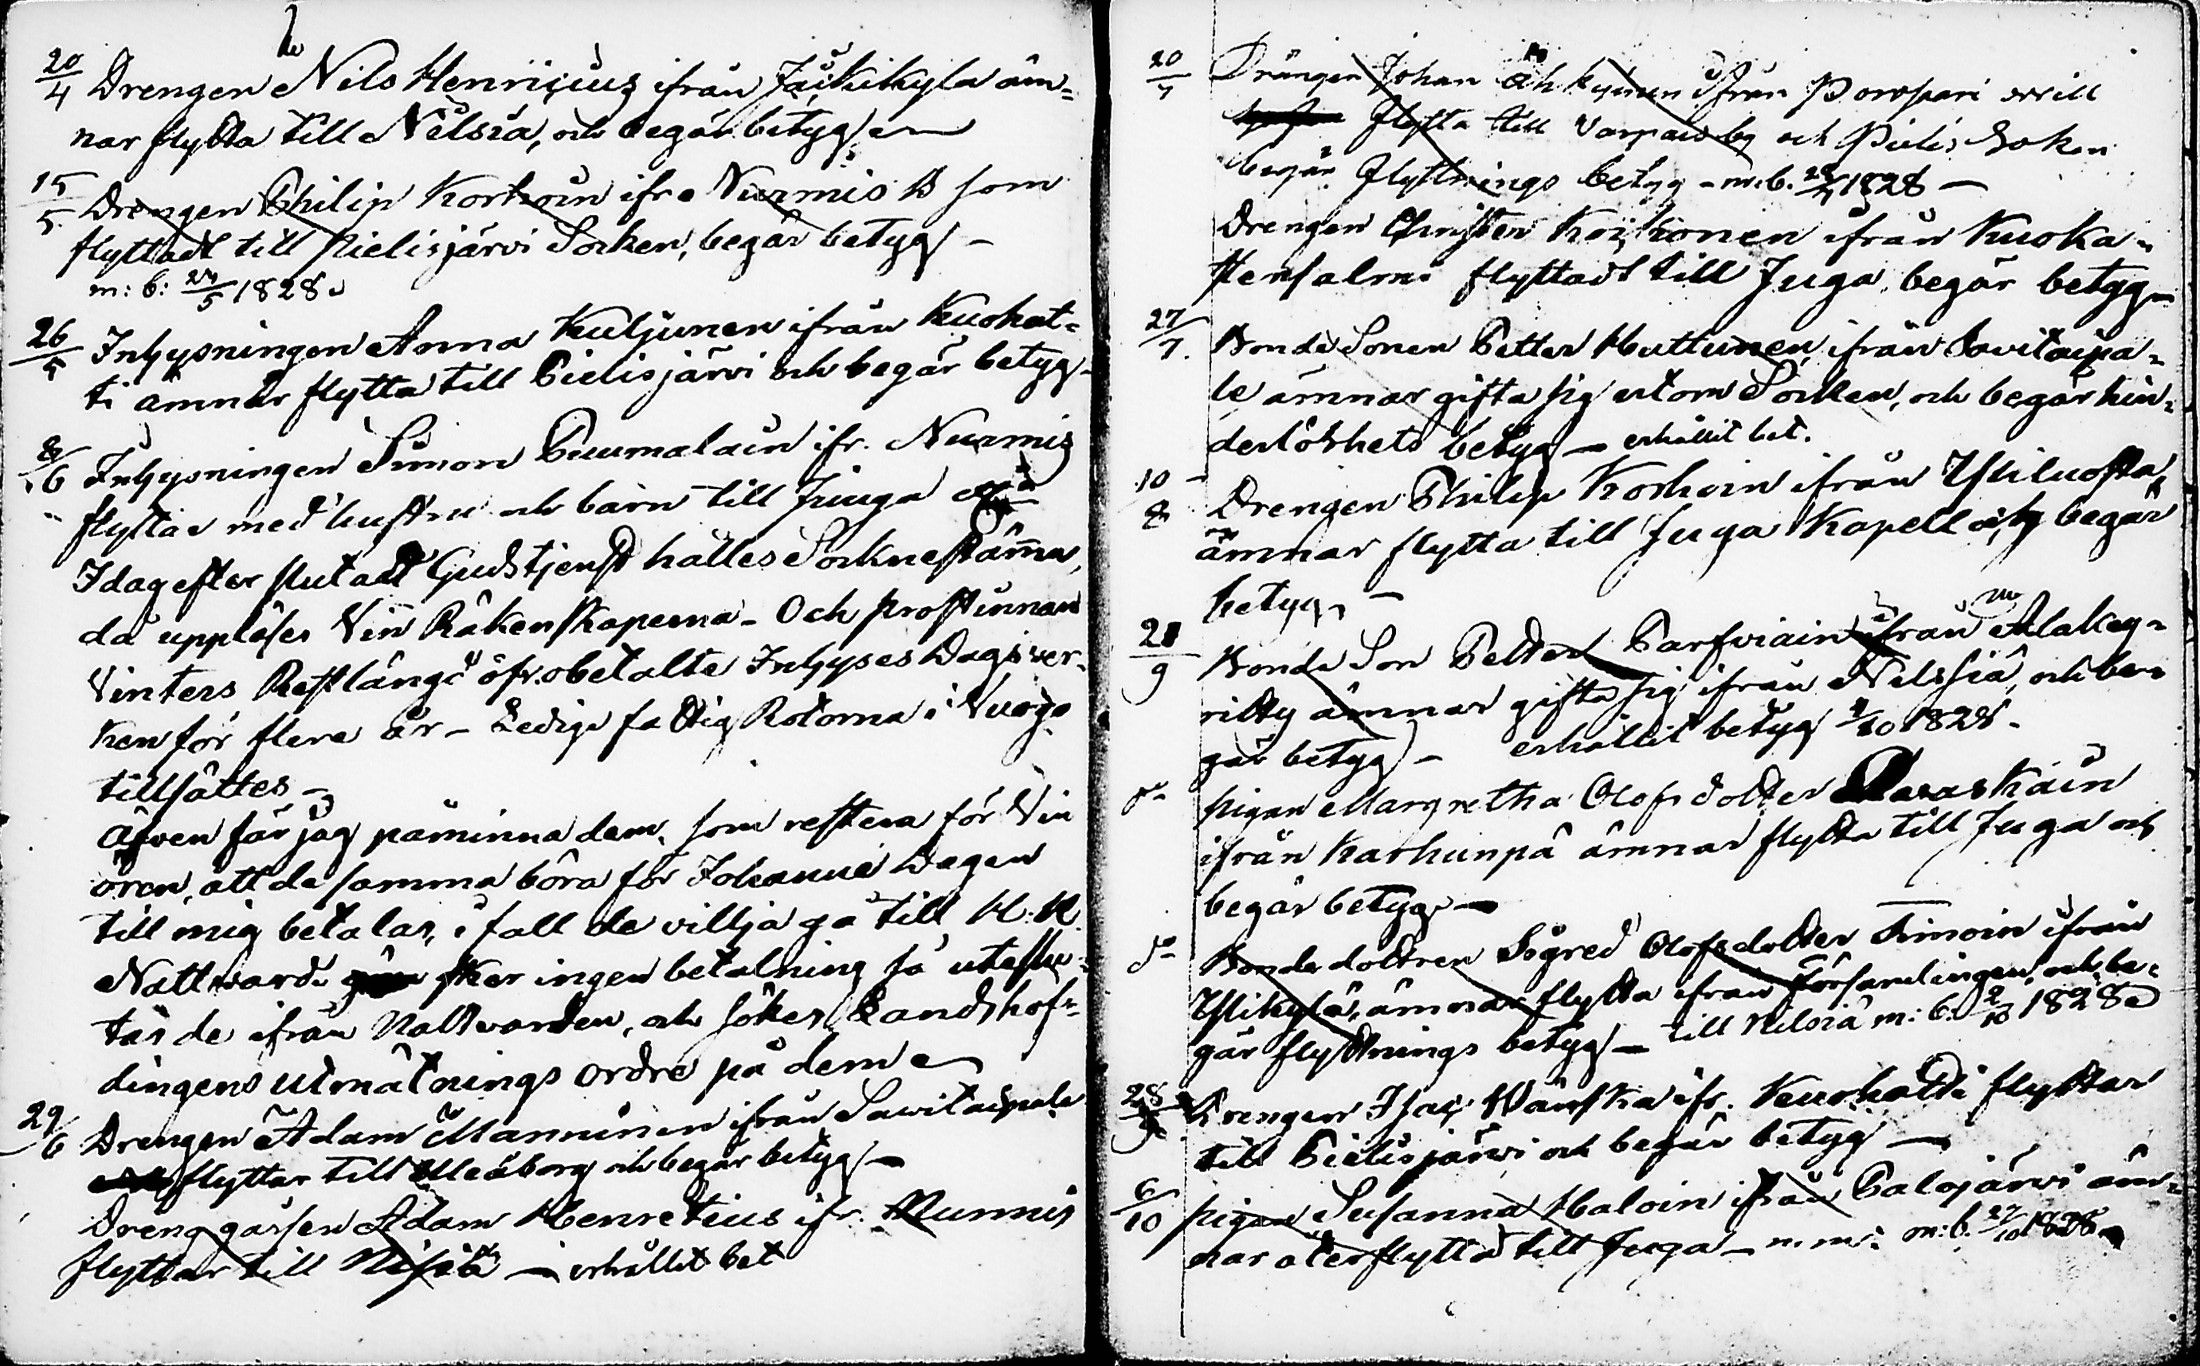 20/4 Drengen Nils Henricius ifrån Jäckikylä äm=
nar flytta till Nilsiä, och begär betyg
15/5 Drengen Philip Korhoin ifr. Nurmis B som
flyttadt till Pielisjärvi Socken, begär betyg –
m: b: 24/5 1828.
26/5 Inhysningen Anna Kuljunen ifrån Kuohat=
ti ämnar flytta till Pielisjärvi och begär betyg –
8/6 Inhysningen Simon Puumalain ifr. Nurmis
flyttar med hustru och barn till Juuga
Idag efter slutadt Gudstjenst hålles Socknestämma,
då uppläses Vin Räkenskaperna – Och prostinnan
Vinters Restlängd öfr. obetalte Inhyses Dagsver=
ken för flere år – Ledige fattig Rotorna i
tillsättes –
Äfven får jag påminna dem, som restera för Vin
ören, att de samma böra för Johanne Dagen
till mig betalas, i fall de villja gå till H. H.
Nattvard. sker ingen betalning så uteslu=
tas de ifrån Nattvarden, och sökes Landshöf=
dingens utmätnings ordre på dem
29/6 Drengen Adam Manninen ifrån Savitaipale
flyttar till Uleåborg och begär betyg –
Dreng gåssen Adam Henretius ifr. Nurmis
flyttar till Nilsiä – erhållet bet
20/7 Drängen Johan ifrån Porospari
flytta till Varpais by och Pielis Soken
begär flyttnings betyg – m: b. 28/7 1828 –
Drengen Christer Koikonen ifrån Kuoka=
stensalmi flyttadt till Juga, begär betyg –
27/7. Bonde Sonen Petter Huttunen ifrån Savitaipa=
le ämnar gifta sig utom Socken, och begär hin=
derlöshets betyg – erhållit bet.
10/8 Drengen Philip Korhoin ifrån Ylikuosta,
ämnar flytta till Juga Kapell och begär
betyg –
21/9 Bonde Son Petter Parfviain ifrån Alakey=
ritty ämnar gifta sig ifrån Nilssiä, och be=
gär betyg – erhållit betyg 4/10 1828.
do pigan Margretha Olofsdotter Raraskain
ifrån Karhunpä ämnar flytta till Juga och
begär betyg –
do Bonde dottren Sigred Olofsdotter Timoin ifrån
Ylikylä, ämnar flytta ifrån Församlingen, och be=
gär flyttnings betyg – till Nilsiä m: b: 2/10 1828
28/9 Drengen Isac Wänskä ifr. Kuohatti flyttar
till Pielisjärvi och begär betyg –
6/10 pigan Susanna Haloin ifrån Palojärvi äm=
nar återflytta till Juga – m: b. 27/10 1828